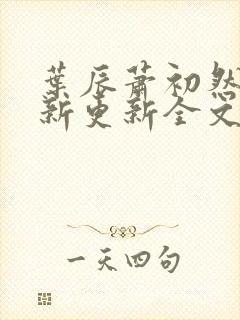 葉辰蕭初然
新更新全文
一天四句